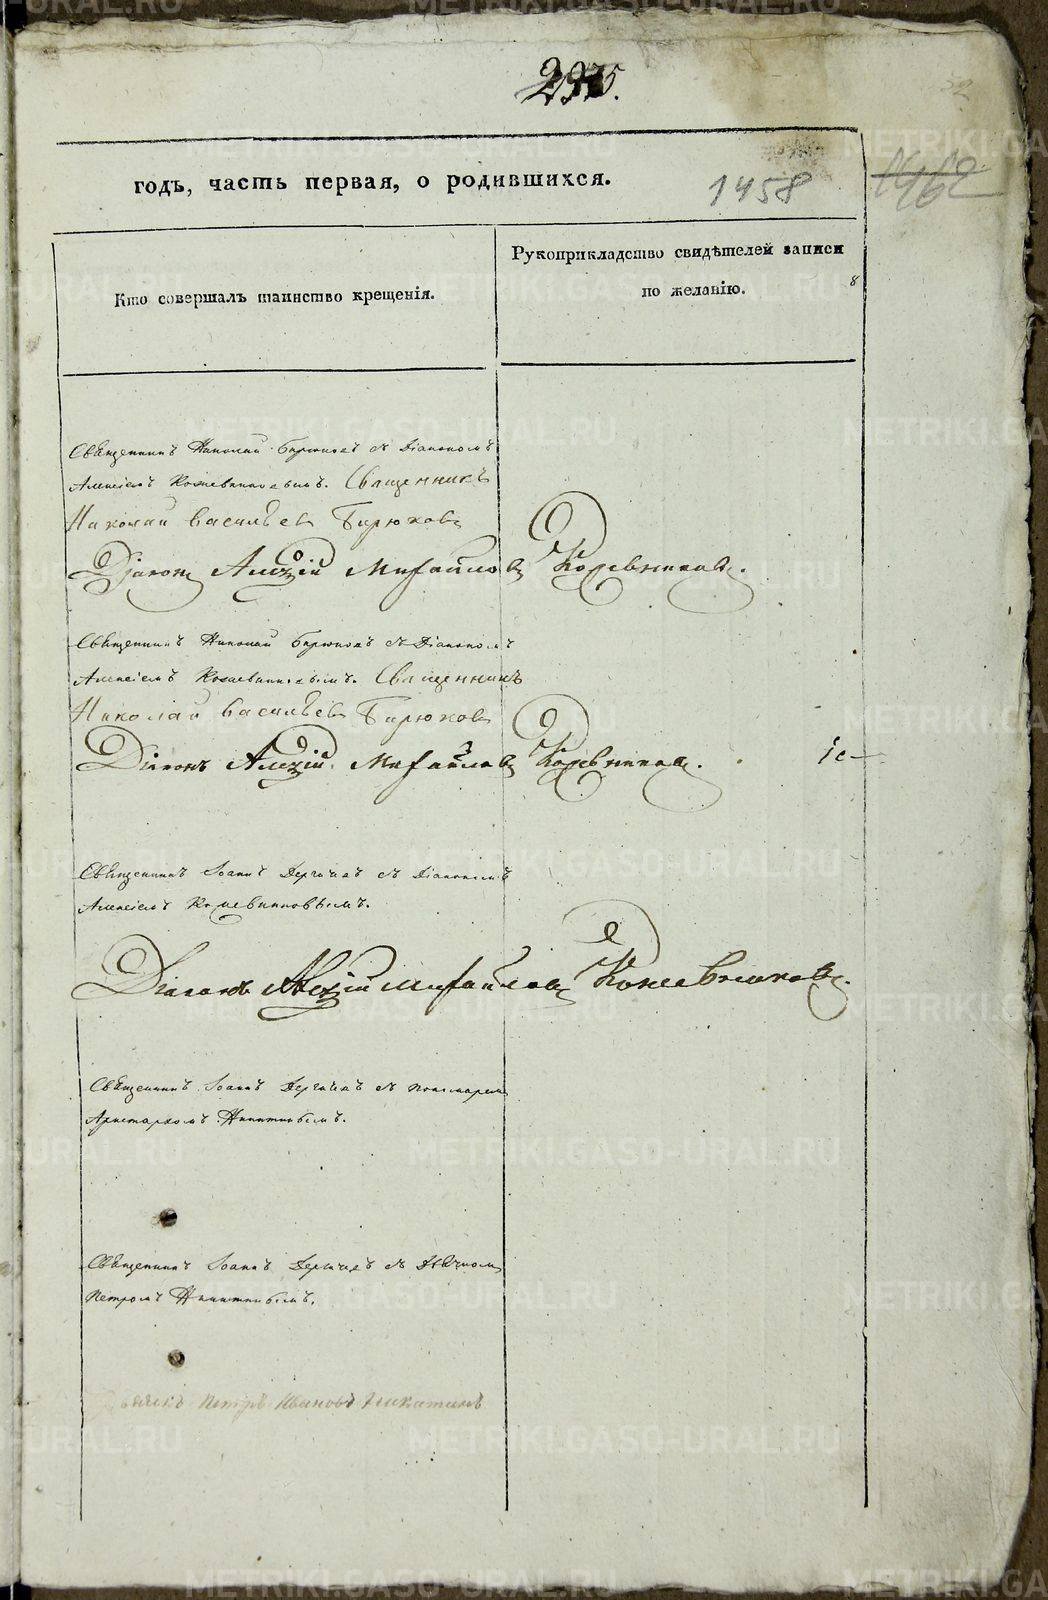 годъ, часть первая, о родившихся.
1458
1462
Кто совершалъ таинство крещенія.
Рукоприкладство свидѣтелей записи
по желанію.
8
Священникъ Николай Бирюковъ съ Діакономъ
Алексіемъ Кожевниковымъ. Священникъ
Николай Васильевъ Бирюковъ
Діаконъ Алексій Михайловъ Кожевниковъ.
Священникъ Николай Бирюковъ съ Діакономъ
Алексіемъ Кожевниковымъ. Священникъ
Николай Васильевъ Бирюковъ
Діаконъ Алексій Михайловъ Кожевниковъ.
Священникъ Іоаннъ съ Діакономъ
Алексіемъ Кожевниковымъ.
Діаконъ Алексій Михайловъ Кожевниковъ.
Священникъ Іоаннъ съ Пономаремъ
Аристархомъ Никитинымъ.
Священникъ Іоаннъ съ Дьячкомъ
Петромъ Никитинымъ.
Дьячекъ Петръ Ивановъ Никитинъ
METRIKI.GASO-URAL.RU